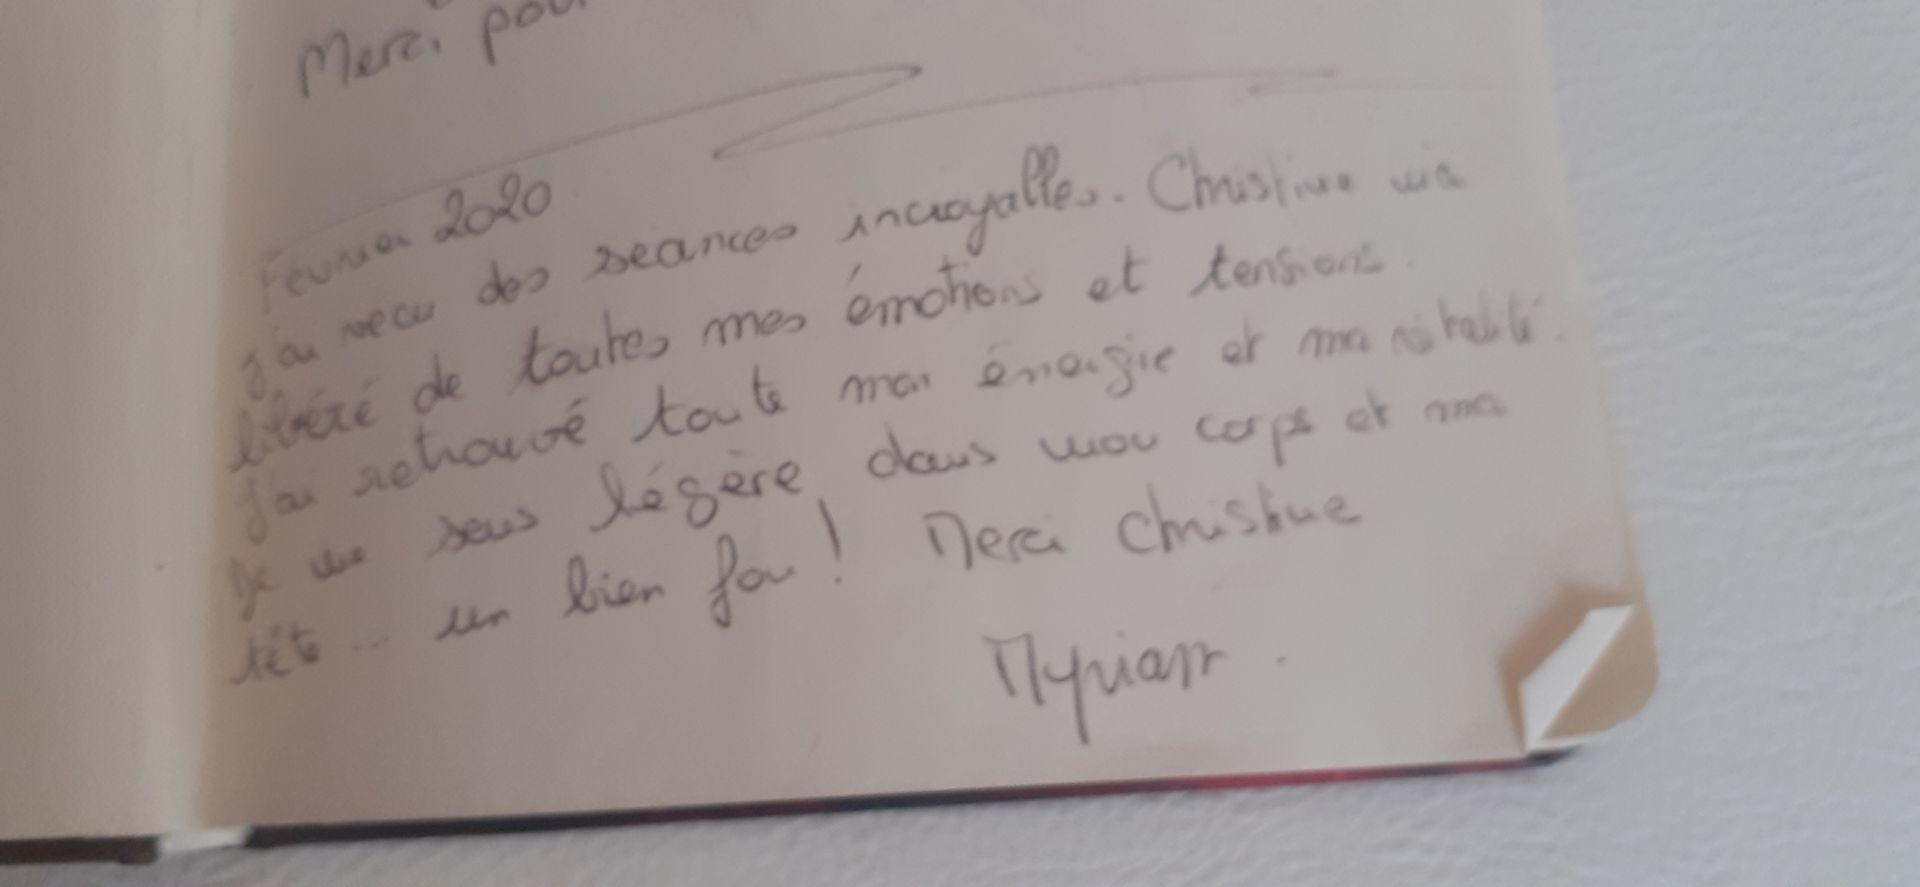 Merci pour
Février 2020
J'ai reçu des séances incroyables. Christine m'a
libéré de toutes mes émotions et tensions.
J'ai retrouvé toute mon énergie et ma vitalité.
Je me sens légère dans mon corps et ma
tête... un bien fou ! Merci Christine
Myriam.